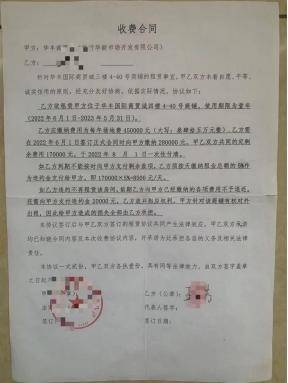 收费合同
甲方：华丰
乙方：
针对华丰国际商贸城三楼 4-40 号商铺的租赁事宜，甲乙双方本着自愿、平等、
诚实信用的原则，经充分友好协商，依据实际情况，协议如下：
乙方欲租赁甲方位于华丰国际商贸城四楼 4-40 号商铺，使用期限为壹年
（2022 年 6 月 1 日-2023 年 5 月 31 日）。
乙方应缴纳费用为每年场地费 450000 元（大写：肆拾伍万元整）。乙方需
在 2022 年 6 月 1 日签订正式合同时向甲方缴纳 280000 元。甲乙双方共同约定剩
余费用 170000 元，于 2022 年 8 月 1 日一次性付清。
如乙方到期不能按时间向甲方支付剩余款项，乙方须按欠缴的报总额的 5%作
为违约金支付给甲方，即 170000×5%=8500 元/天。
如乙方违约不再租赁该商铺，前期乙方向甲方已经缴纳的各项费用不予退还，
还需向甲方支付违约金 20000 元。乙方放弃相应权利，甲方针对该商铺有权对外
出租，因此给甲方造成的损失全部由乙方承担。
本协议签订后与甲乙双方签订的租赁协议共同产生法律效应，甲乙双方承诺
均已知晓合同内容及本次收费协议内容，并承诺为此承担各自的义务及相关法律
责任。
本协议一式贰份，甲乙双方各执壹份，具有同等法律效力，由双方签字盖章
之日起
乙方（公章）：
代表人签字：
签订日期：